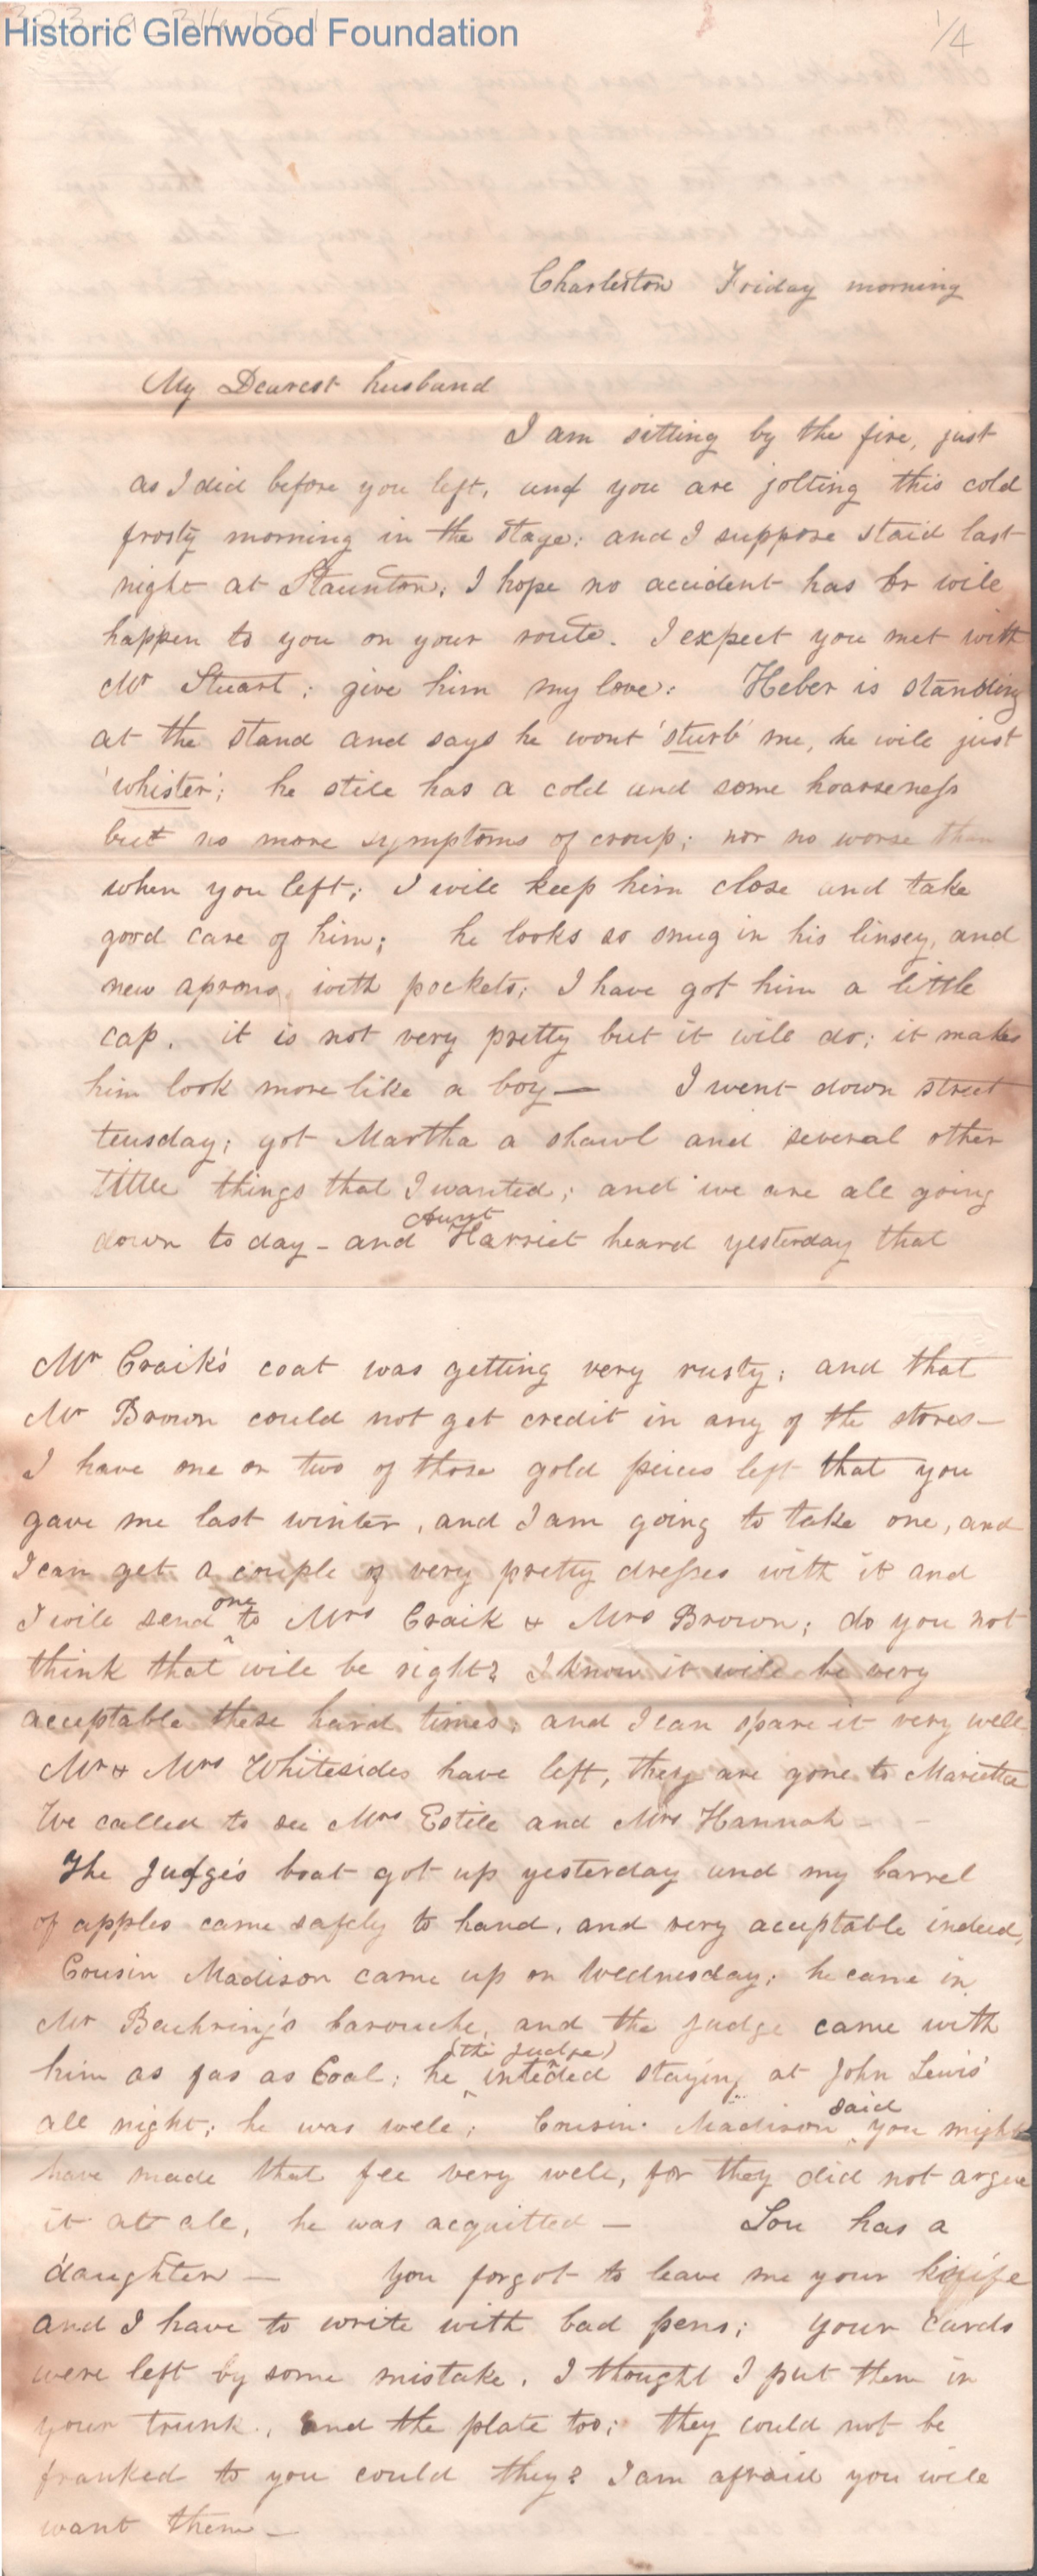 Historic Glenwood Foundation
1/4
Charleston Friday morning
My Dearest husband
I am sitting by the fire, just
as I did before you left, and you are jolting this cold
frosty morning in the stage: and I suppose staid last
night at Staunton; I hope no accident has or will
happen to you on your route. I expect you met with
Mr Stuart; give him my love: Heber is standing
at the stand and says he wont 'sturb' me, he will just
'whister'; he still has a cold and some hoarseness
but no more symptoms of croup; nor no worse than
when you left; I will keep him close and take
good care of him; he looks so snug in his linsey, and
new aprons with pockets; I have got him a little
cap. it is not very pretty but it will do; it makes
him look more like a boy — I went down street
teusday; got Martha a shawl and several other
little things that I wanted; and we are all going
down to day - and Aunt Harriet heard yesterday that
Mr Craik's coat was getting very rusty; and that
Mr Brown could not get credit in any of the stores —
I have one or two of those gold peices left that you
gave me last winter, and I am going to take one, and
I can get a couple of very pretty dresses with it and
I will send one to Mrs Craik & Mrs Brown; do you not
think that will be right? I know it will be very
acceptable these hard times; and I can spare it very well
Mr & Mrs Whitesides have left, they are gone to Marietta
We called to see Mrs Estill and Mrs Hannah —
The Judge's boat got up yesterday and my barrel
of apples came safely to hand, and very acceptable indeed,
Cousin Madison came up on Wednesday; he came in
Mr Beuhring's barouche, and the judge came with
him as far as Coal; he (the judge) intended staying at John Lewis'
all night; he was well; Cousin Madison said you might
have made that fee very well, for they did not argue
it at all, he was acquitted — Lou has a
daughter — You forgot to leave me your knife
and I have to write with bad pens; your cards
were left by some mistake. I thought I put them in
your trunk, and the plate too; they could not be
franked to you could they? I am afraid you will
want them —